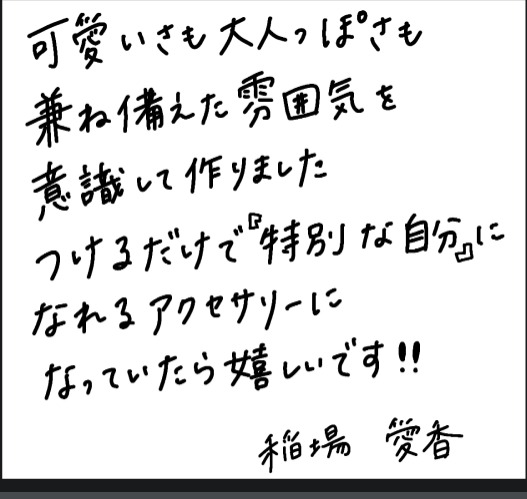 可愛いさも大人っぽさも
兼ね備えた雰囲気を
意識して作りました
つけるだけで『特別な自分』に
なれるアクセサリーに
なっていたら嬉しいです!!
稲場 愛香